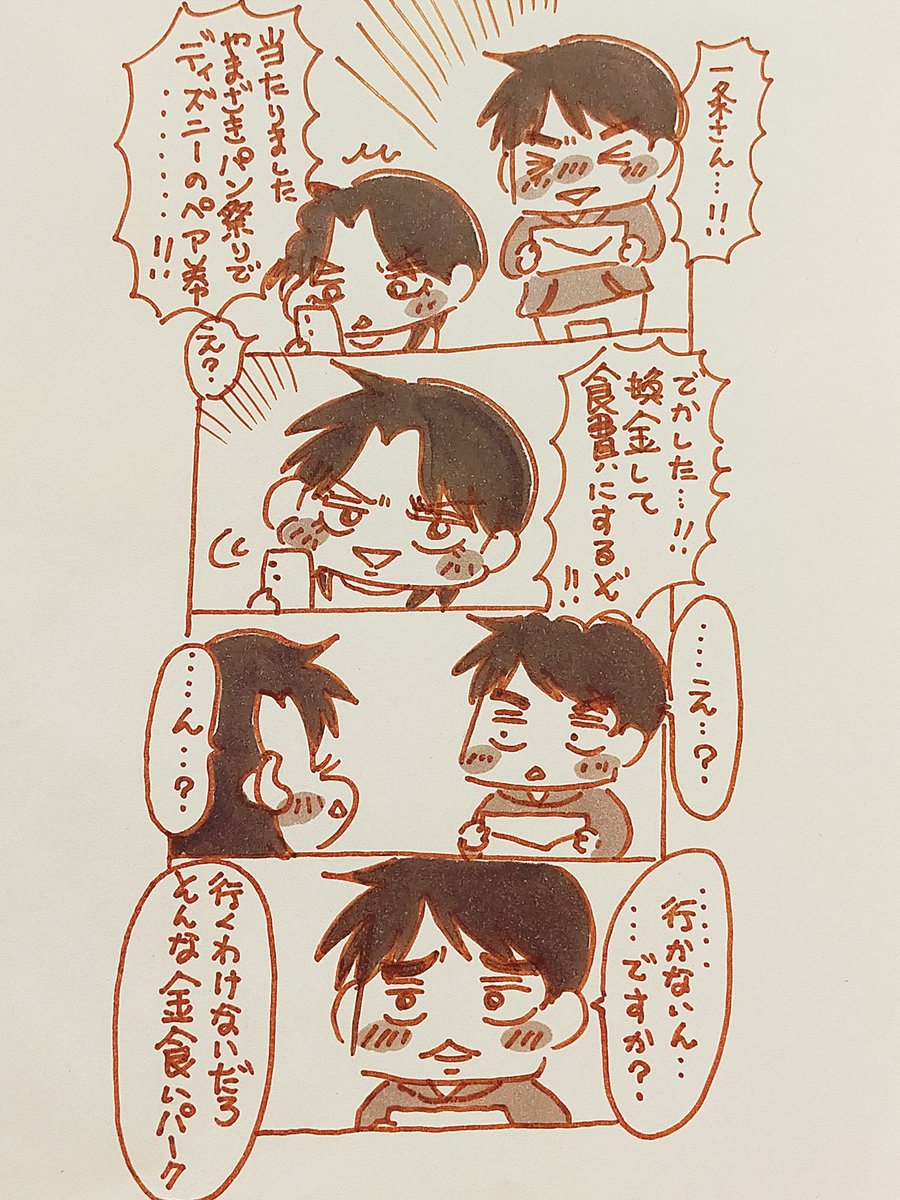 一条さん…!!
当たりました
やまざきパン祭りで
ディズニーのペア券
……!!
え?
でかした…!!
換金して
食費にするぞ
!!
……え…?
……ん…?
……行かないん…
……ですか?
行くわけないだろ
そんな金食いパーク